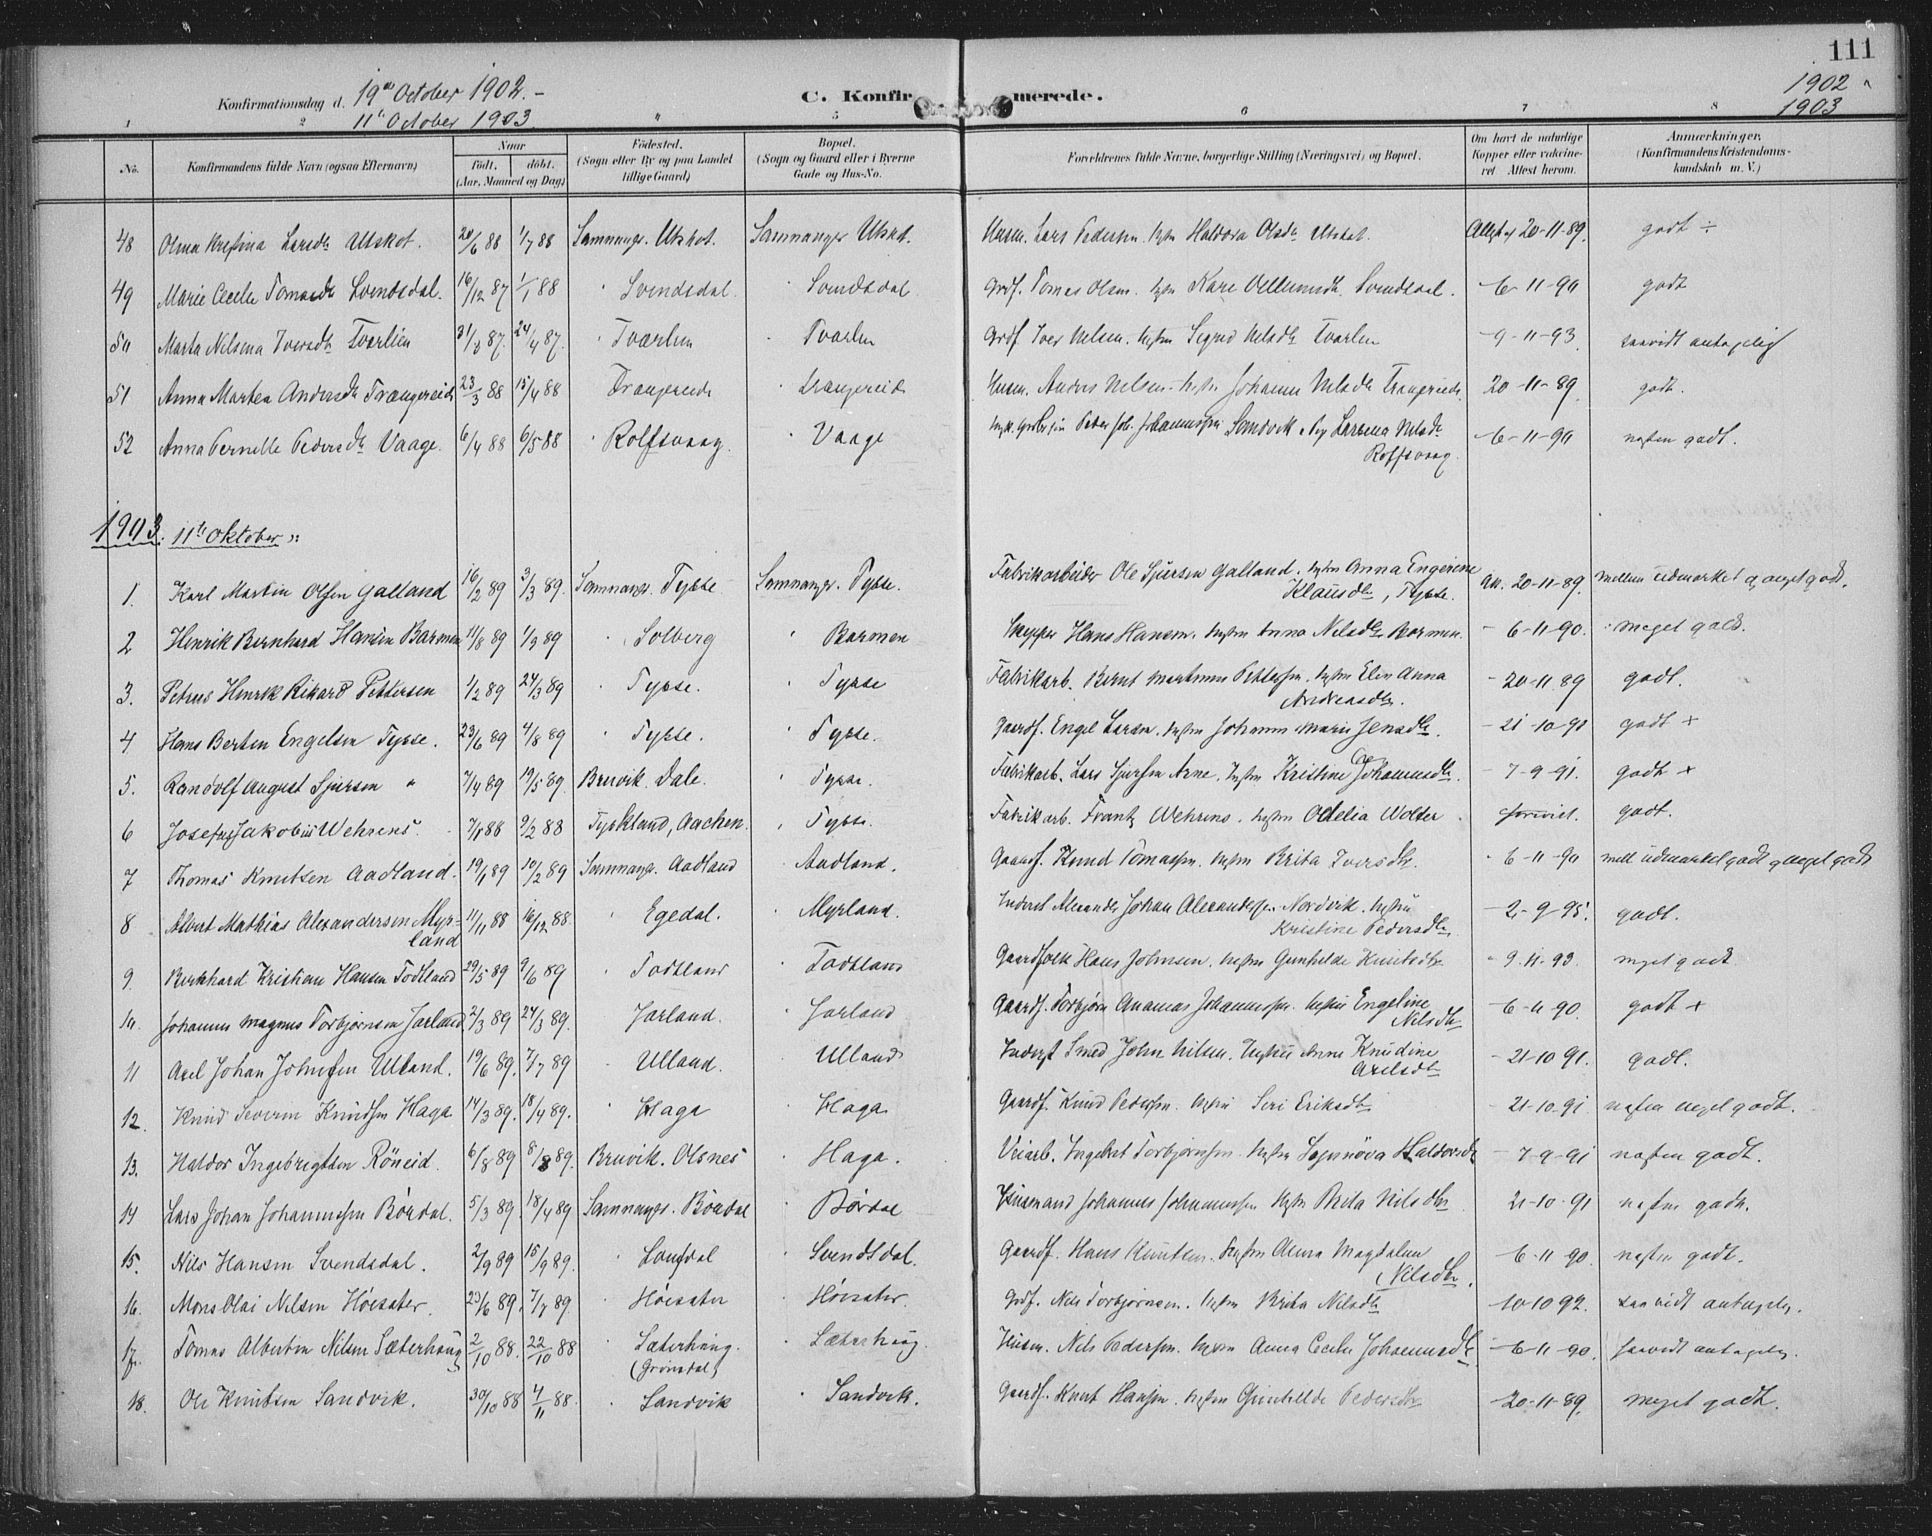 111
Konfirmationsdag d. 19de October 1902.-
C. Konfirmerede.
1902
11te October 1903.
1903
1 2 5 6 7 8
No. Konfirmandens fulde Navn (ogsaa Efternavn) Naar født. døbt. (Aar, Maaned og Dag) Fødested. (Sogn eller By og paa Landet tillige Gaard.) Bopæl. (Sogn og Gaard eller i Byerne Gade og Hus-No. Forældrenes fulde Navne, borgerlige Stilling (Næringsvei) og Bopæl. Om havt de naturlige Kopper eller vakcineret. Attest herom. Anmærkninger. (Konfirmandens Kristendomskundskab m. V.)
48 Olina Kristina Larsdr Utskot. 20/6 88 1/7 88 Samnanger. Utskot. Samnanger Utskot. Husm. Lars Pedersen. Hustru Haldora Olsdr Utskot. Attest af 20-11-89. godt ÷
49 Marie Cecilie Tomasdr Svendsdal. 16/12 87 1/1 88 " Svendsdal. " Svendsdal Grdf. Tomas Olsen. Svendsdal. - 6-11-90 godt
50 Marta Nilsena Iversdr Tvarlien 31/3 87. 24/4 87. " Tværlien " Tvarlien Grdf. Iver Nilsen. Hustru Sigrid Nilsdr Tvarlien - 9-11-93. saavidt antagelig
51 Anna Martea Andersdr Trængereid 23/3 88 15/4 88 " Trængereid " Trængereid Husm. Anders Nilsen. Hustru Johanna Nilsdr Trængereid. 20-11-89. godt.
52 Anna Pernelle Pedersdr Vaage. 6/4 88 6/5 88 " Rolfsvaag. " Vaage Peder Joh. Johannessen Sandvik Larsina Nilsdr
Rolfsvaag. - 6-11-90 næsten godt.
1903. 11te oktober:
1. Karl Martin Olsen Galland 16/2 89 3/3 89. Samnanger. Tysse Samnanger. Tysse. Fabrikarbeider Ole Sjursen Galland. Hustru Anna Engerine
Klausdr, Tysse. Att. 20-11-89. mellem udmærket og meget godt.
2 Henrik Bernhard Hansen Barmen 11/8 89 1/9 89 " Solberg " Barmen Skipper Hans Hansen. Hustru Anna Nilsdr Barmen. - 6-11-90. meget godt.
3. Petrus Henrik Rikard Pettersen 1/2 89 24/3 89 " Tysse. " Tysse Fabrikarb. Bernt Martinus Pettersen. Hustru Elen Anna
Andreasdr. - 20-11-89 godt.
4 Hans Berten Engelsen Tysse. 23/6 89 4/8 89 " Tysse. " Tysse. Gaardf. Engel Larsen. Hustru Johanna Marie Jensdr. - 21-10-91 godt +
5. Randolf August Sjursen " 7/4 89 19/5 89. Bruvik. Dale. " Tysse. Fabrikarb. Lars Sjursen Arne. Hustru Kristine Johannesdr. - 7-9-91. godt +
6 Josef Jakobus Wehrens. 7/1 88 9/2 88 Tyskland, Aachen. " Tysse. Fabrikarb. Frantz Wehrens. Hustru Odelia Wolter godt.
7 Thomas Knutsen Aadland. 19/1 89 10/2 89 Samnanger. Aadland " Aadland. Gaardf. Knud Tomassen. Hustru Brita Iversdr. " 6-11-90 mell. udmærket godt og meget godt
8 Albert Mathias Alexandersen Myr-
land 11/11 88 16/12 88. " Egedal. " Myrland. Inderst Alexander Johan Alexandersen Nordvik. Hustru
Kristine Pedersdr. - 2-9-95. godt.
9. Bernhard Kristian Hansen Todtland 29/5 89 9/6 89 " Todtland " Todtland Gaardfolk Hans Johnsen. Hustru Gunhilde Knutsdtr " 9-11-93. meget godt
10. Johannes Magnus Torbjørnsen Jarland 2/3 89 24/3 89. " Jarland. " Jarland Gaardf. Torbjørn Ananias Johannessen. Hustru Engeline
Nilsdtr - 6-11-90. godt +
11 Axel Johan Johnsen Ulland. 19/6 89. 7/7 89 " Ulland. " Ulland Inderst Smed John Nilsen. Hustru Anne Knudine
Axelsdtr - 21-10-91. godt.
12. Knud Severin Knudsen Haga 14/3 89. 18/4 89. " Haga " Haga Gaardf. Knud Pedersen. Hustru Siri Eriksdtr - 21-10-91 næsten meget godt.
13. Haldor Ingebrigtsen Röneid. 6/8 89 8/9 89. Bruvik. Olsnes " Haga. Veiarb. Ingebret Torbjørnsen. Hustru Synnöva Haldorsdr - 7-9-91 næsten godt.
14 Lars Johan Johannessen Bördal. 5/3 89. 18/4 89 Samnanger. Bördal " Børdal Husmand Johannes Johannessen Hustru Brita Nilsdtr - 21-10-91 næsten godt.
15. Nils Hansen Svendsdal. 2/9 89 15/9 89. " Langdal " Svendsdal. Gaardf. Hans Knutsen. Hustru Anna Magdalena
Nilsdtr. - 6-11-90. næsten godt.
16. Mons Olai Nilsen Höisæter. 23/6 89. 7/7 89 " Höisæter " Höisæter. Grdf. Nils Torbjørnsen. Hustru Brita Nilsdtr - 10-10-92. saavidt antagelig.
17. Tomas Albertin Nilsen Sæterhaug 2/10 88. 22/10 88 " Sæterhaug.
(Grönsdal) " Sæterhaug. Husm. Nils Pedersen. Hustru Anna Cecilie Johannesdtr - 6-11-90. saavidt antagelig.
18. Ole Knutsen Sandvik. 30/10 88 4/11 88. " Sandvik " Sandvik. Gaardf. Knut Hansen. Hustru Gunhilde Pedersdtr - 20-11-89. meget godt.